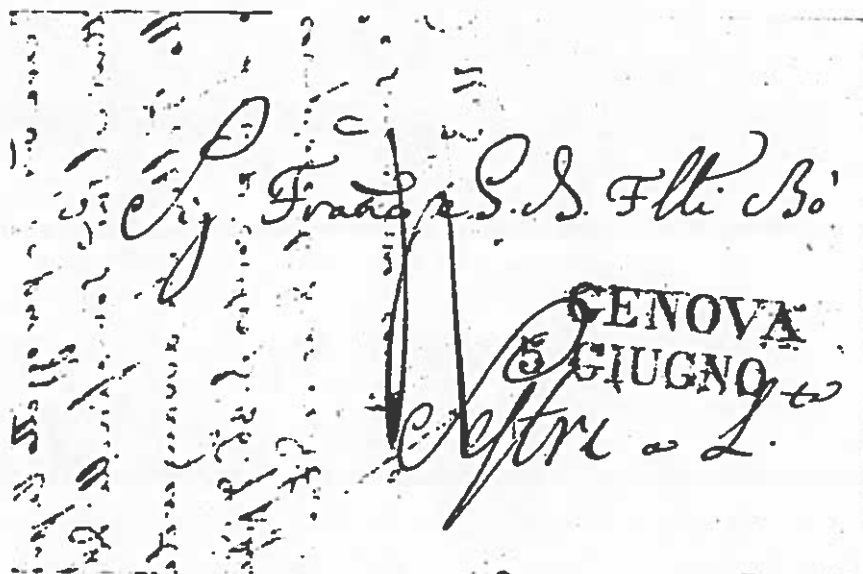 Sig Franc e S. B. Flli Bo'
GENOVA
5 GIUGNO
Sestri a L.to